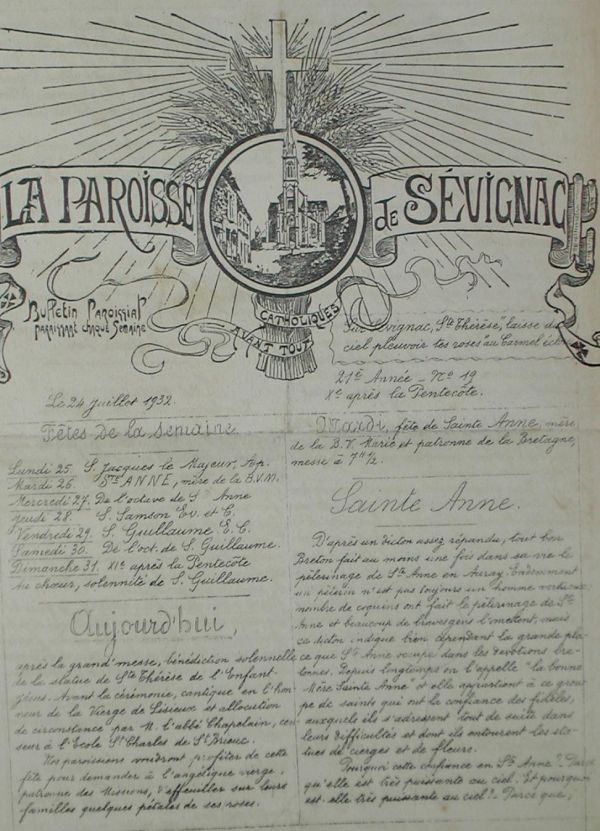 LA PAROISSE de SÉVIGNAC
Bulletin Paroissial
paraissant chaque Semaine
CATHOLIQUES
AVANT TOUT
Sur Sévignac, Ste Thérèse, laisse du
ciel pleuvoir les roses au Carmel
21e Année - No 19
Xe après la Pentecôte.
Le 24 juillet 1932.
Fêtes de la semaine
Lundi 25. S. Jacques le Majeur, Ap.
Mardi 26. Ste ANNE, mère de la B.V.M.
Mercredi 27. De l'octave de S. Anne
Jeudi 28. S. Samson Ev. et C.
Vendredi 29. S. Guillaume E. C.
Samedi 30. De l'oct. de S. Guillaume.
Dimanche 31. XIe après la Pentecôte
Au chœur, solennité de S. Guillaume.
Aujourd'hui,
après la grand'messe, bénédiction solennelle
de la statue de Ste Thérèse de l'Enfant
Jésus. Avant la cérémonie, cantique en l'hon
neur de la Vierge de Lisieux et allocution
de circonstance par M. l'abbé Chapelain, cen
seur à l'Ecole St Charles de St Brieuc.
Nos paroissiens voudront profiter de cette
fête pour demander à l'angélique vierge,
patronne des Missions, d'effeuiller sur leurs
familles quelques pétales de ses roses.
Mardi, fête de Sainte Anne, mère
de la B. V. Marie et patronne de la Bretagne,
messe à 7H ½
Sainte Anne.
D'après un dicton assez répandu, tout bon
Breton fait au moins une fois dans sa vie le
pèlerinage de Ste Anne en Auray. Evidemment
un pèlerin n'est pas toujours un homme vertueux
nombre de coquins ont fait le pèlerinage de Ste
Anne et beaucoup de braves gens l'omettent, mais
ce dicton indique bien cependant la grande pla
ce que Ste Anne occupe dans les dévotions bre
tonnes. Depuis longtemps on l'appelle "la bonne
Mère Sainte Anne" et elle appartient à ce grou
pe de saints qui ont la confiance des fidèles,
auxquels ils s'adressent tout de suite dans
leurs difficultés et dont ils entourent les sta
tues de cierges et de fleurs.
Pourquoi cette confiance en Ste Anne? Parce
qu'elle est très puissante au ciel. Et pourquoi
est-elle très puissante au ciel? - Parce que,